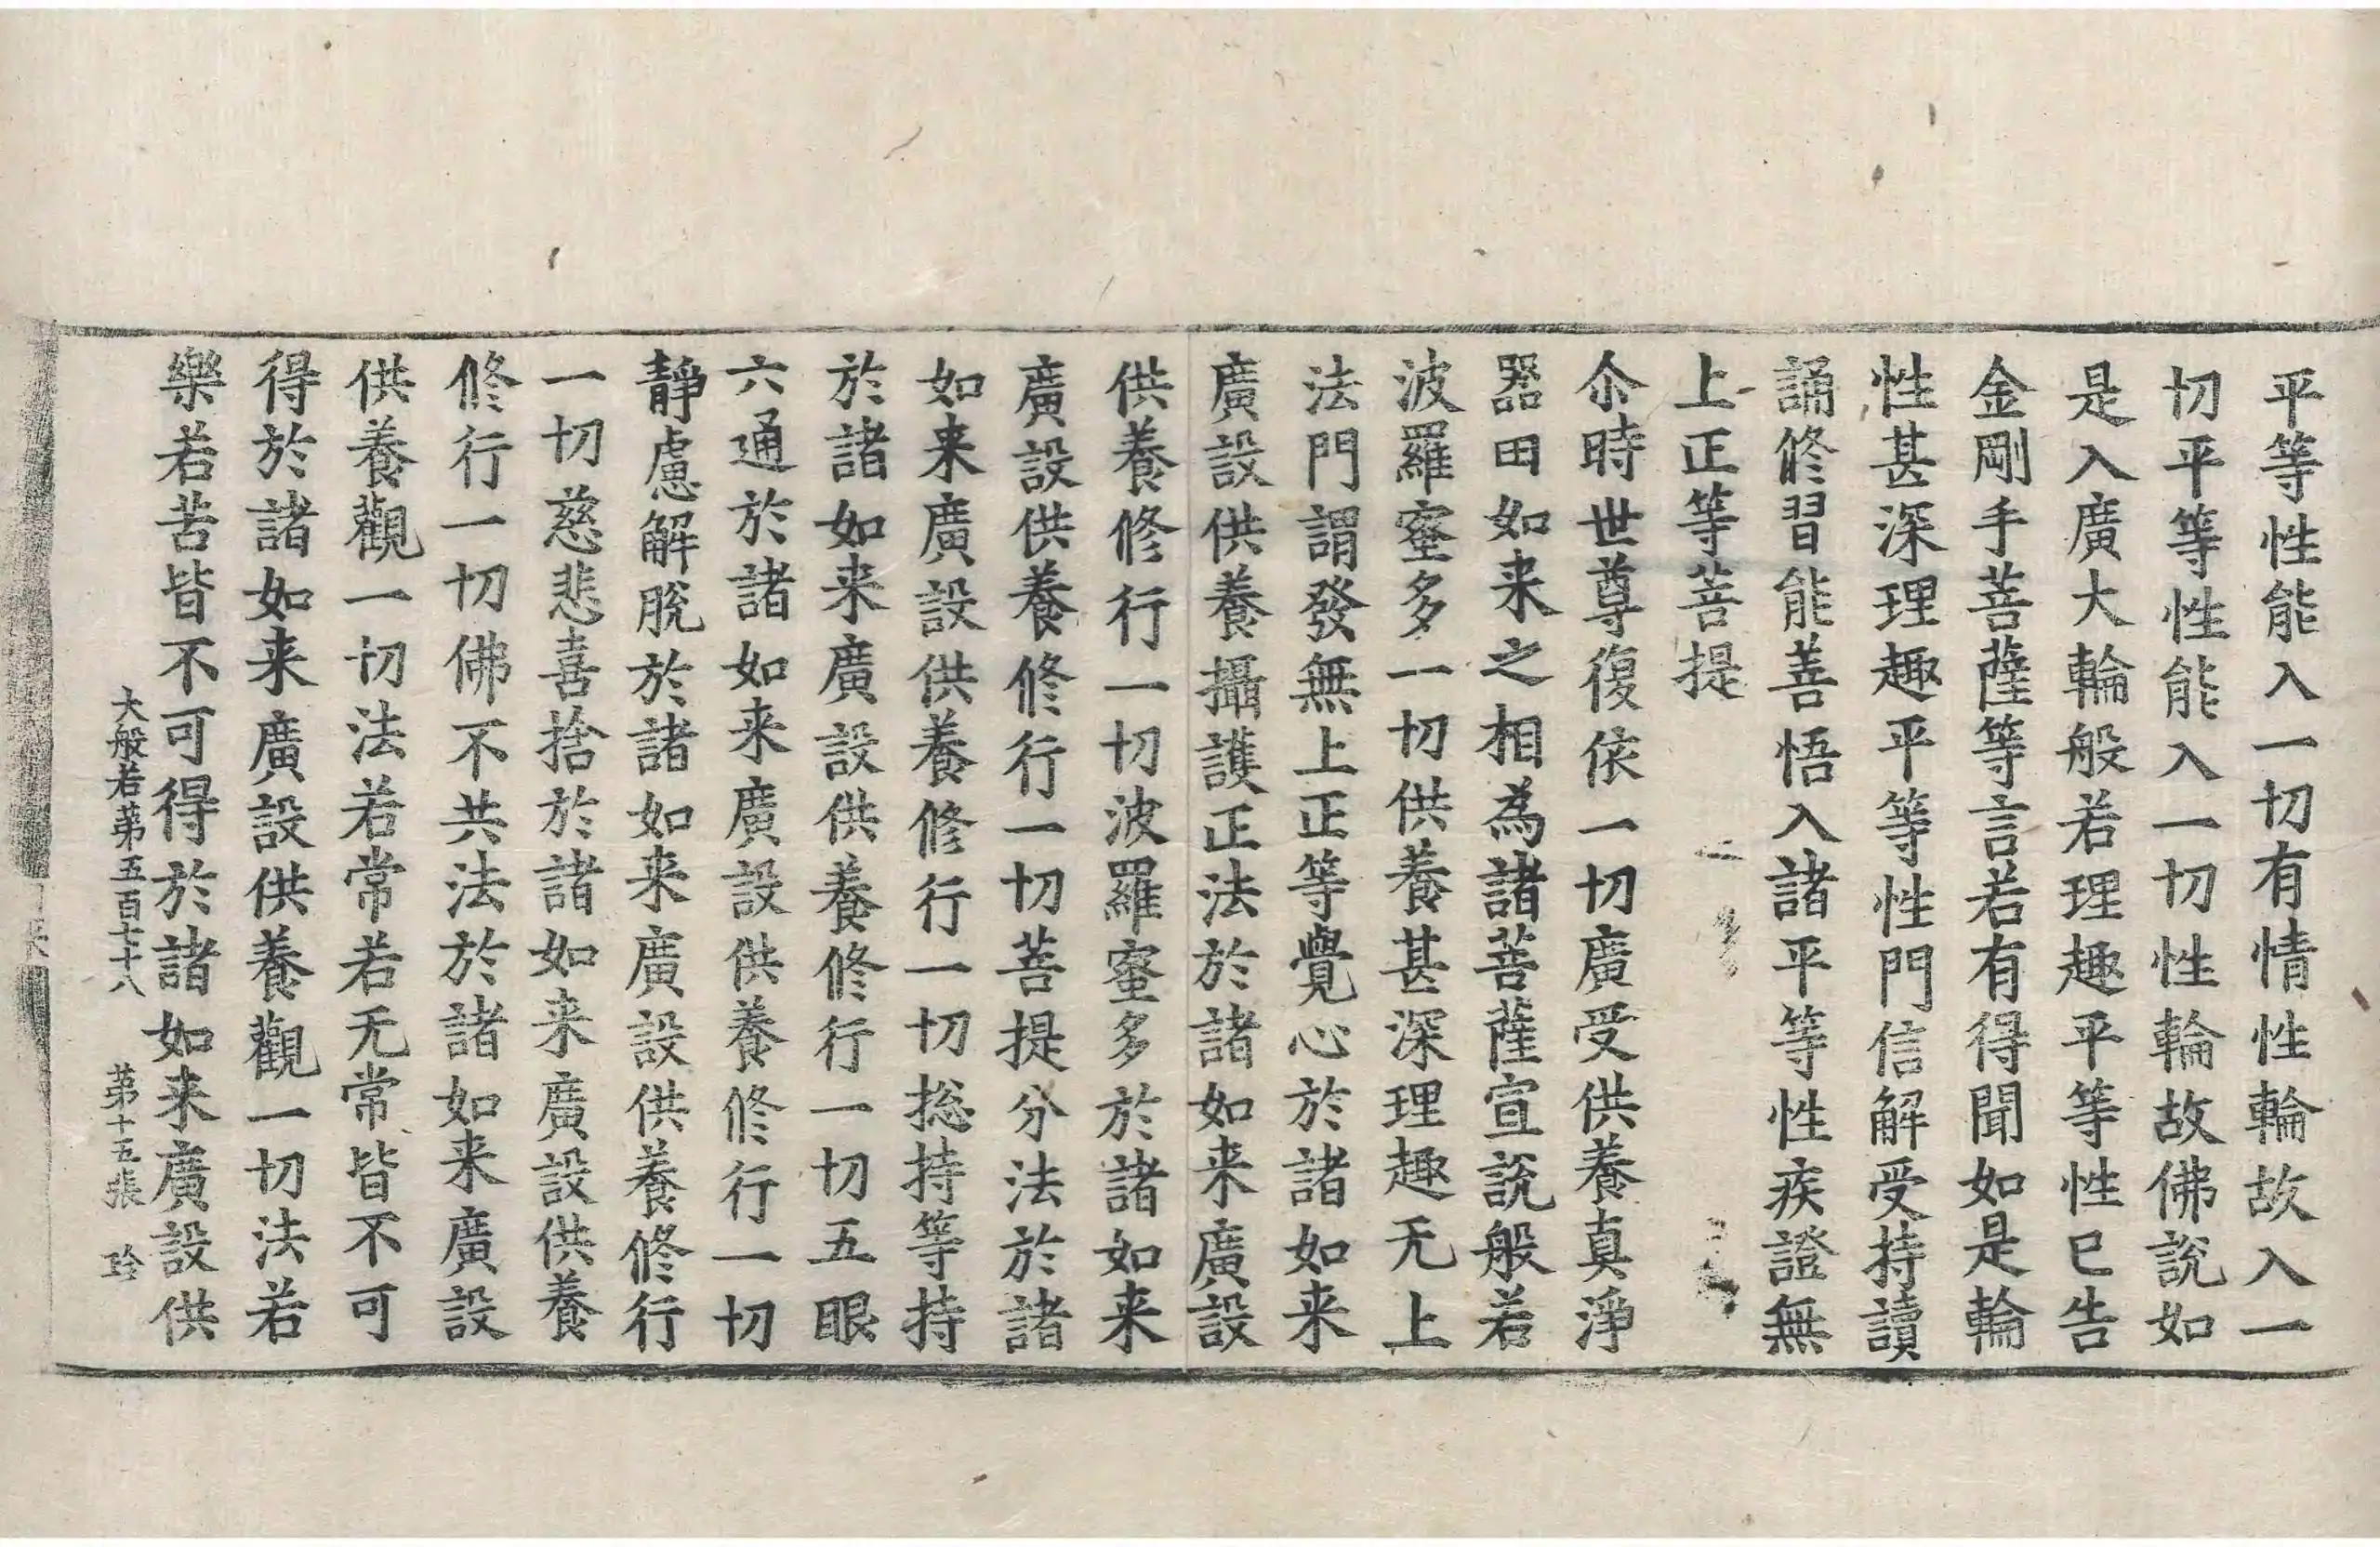 平等性能入一切有情性輪故入一
切平等性能入一切性輪故佛說如
是入廣大輪般若理趣平等性已告
金剛手菩薩等言若有得聞如是輪
性甚深理趣平等性門信解受持讀
誦修習能善悟入諸平等性疾證無
上正等菩提
尒時世尊復依一切廣受供養真淨
器田如来之相為諸菩薩宣說般若
波羅蜜多一切供養甚深理趣无上
法門謂發無上正等覺心於諸如来
廣設供養攝護正法於諸如来廣設
供養修行一切波羅蜜多於諸如来
廣設供養修行一切菩提分法於諸
如来廣設供養修行一切捴持等持
於諸如来廣設供養修行一切五眼
六通於諸如来廣設供養修行一切
靜慮解脫於諸如来廣設供養修行
一切慈悲喜捨於諸如来廣設供養
修行一切佛不共法於諸如来廣設
供養觀一切法若常若无常皆不可
得於諸如来廣設供養觀一切法若
樂若苦皆不可得於諸如来廣設供
大般若第五百七十八 第十五張 珎